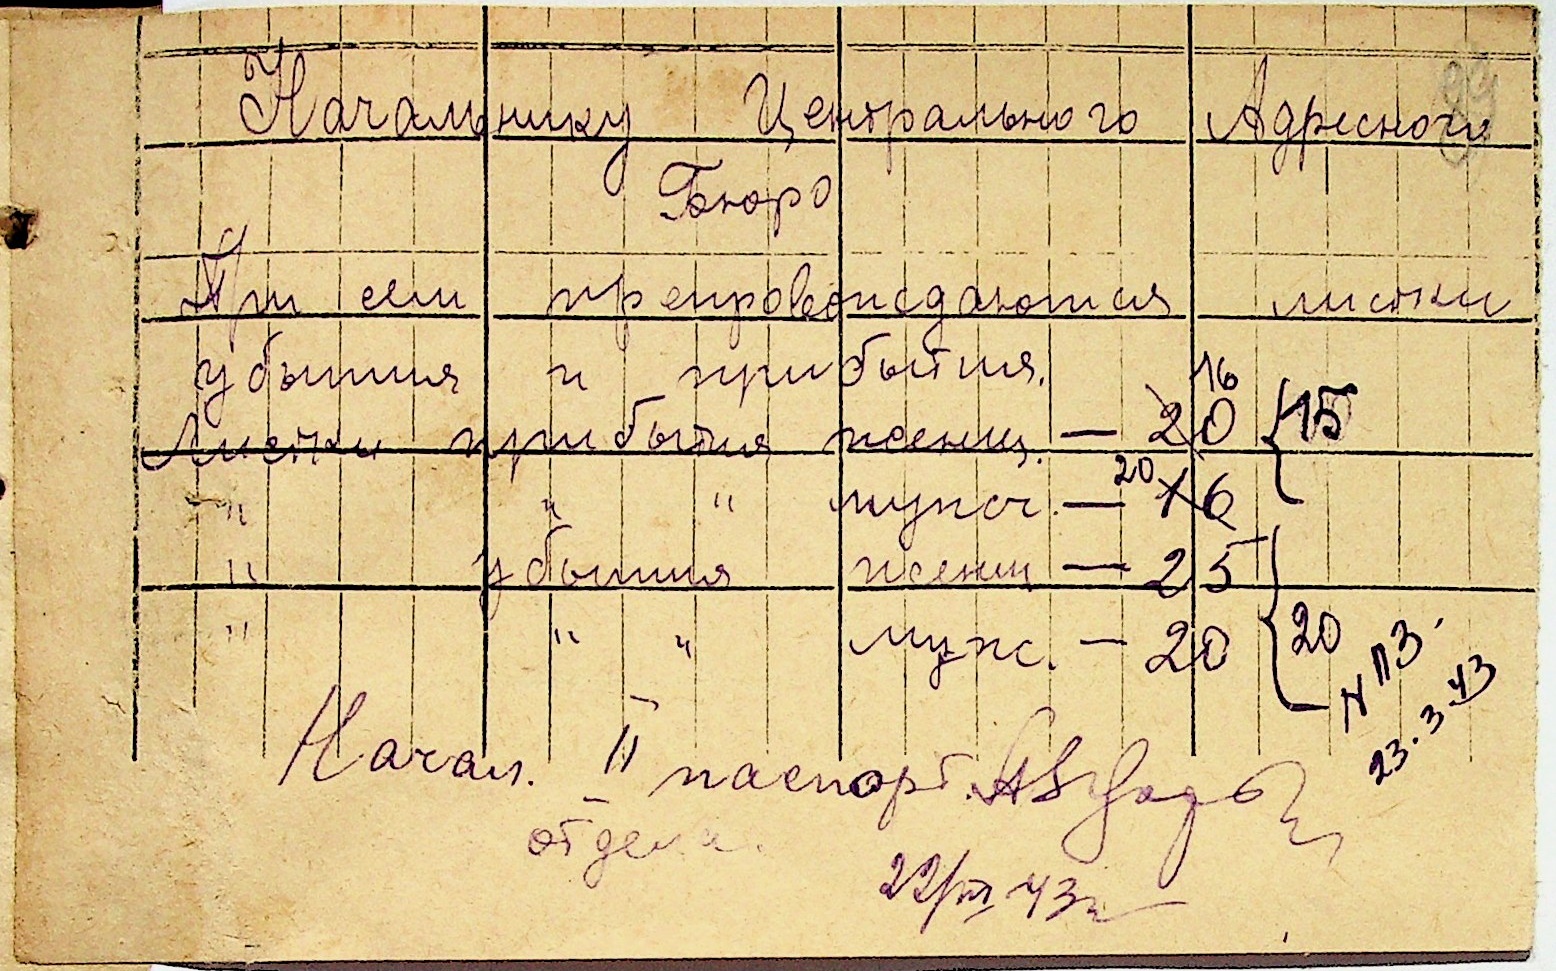 99
Начальнику Центрального Адресного
Бюро
При сем препровождаются листки
убытия и прибытия.
16
Листки прибытия женщ. — 20 { 15
" " " мужч. — 20 16
" убытия женщ — 25
" " " мужс. — 20 { 20
N 113.
23.3.43
Начал. II паспорт.
отдела.
22/III 43г